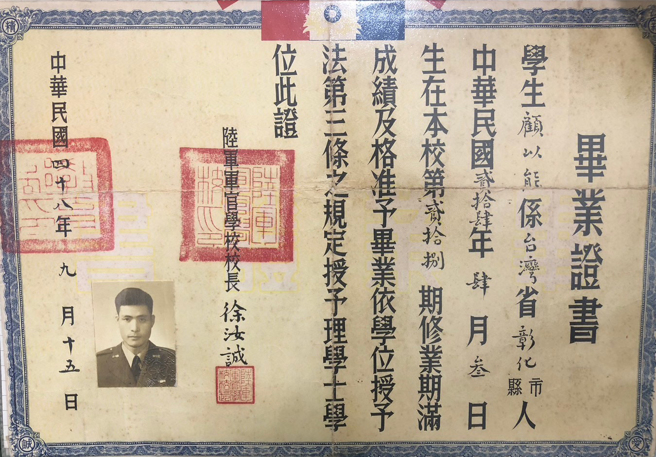 畢業證書
學生顧以能係台灣省彰化縣市人
中華民國貳拾肆年肆月叁日
生在本校第貳拾捌期修業期滿
成績及格准予畢業依學位授予
法第三條之規定授予理學士學
位此證
陸軍軍官學校校長徐汝誠
中華民國四十八年九月十五日